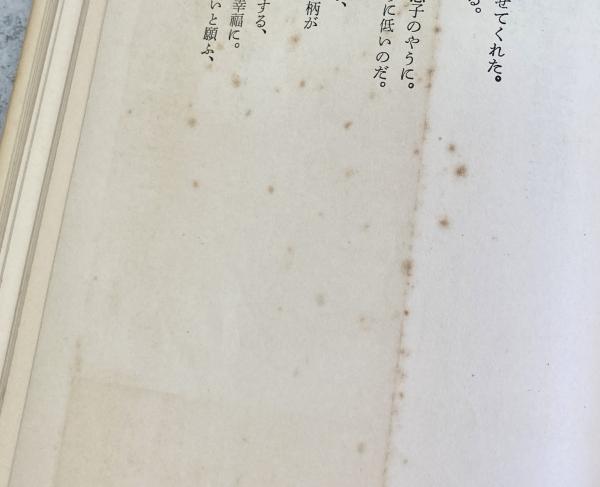 せてくれた。
る。
子のやうに。
に低いのだ。
、
柄が
する、
幸福に。
いと願ふ、